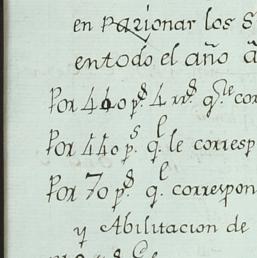 en razionar los S
en todo el año a
Por 440 p.s 4 rr.s q.e le cor
Por 440 p.s q. le corresp
Por 70 p.s q. l correspon
y Abilitacion de